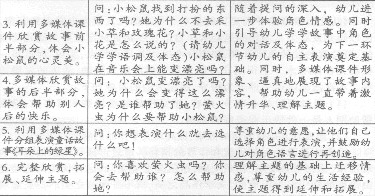 3. 利用多媒体课
件欣赏故事前
半部分,体会小
松鼠的心灵美。
问:小松鼠找到打扮的东
西了吗?她为什么不去采
小草和玫瑰花?小草和小
花是怎么说的?(请幼儿
学学语词及体态)小松鼠
在音乐会上能变漂亮吗?
随着提问的深入,幼儿进
一步体验角色情感。同时
引导幼儿学学故事中角色
的对话及体态,为下一环
节幼儿的自主表演奠定基
础。同时,多媒体课件形
4.多媒体欣赏故
事的后半部分,
体会帮助别人
后的快乐。
问:小松鼠变漂亮了吗?
她为什么会变得这么漂
亮?是谁帮助了她?萤火
虫为什么要帮助小松鼠?
象、逼真地展现了故事内
容,帮助幼儿一直带着激
情升华、理解主题。
5.利用多媒体课
件分组表演童话故
事《耳朵上的绿星》。
问:你想表演什么就去连
什么吧!
尊重幼儿的意愿,让他们自
己选择角色进行表演,并鼓励幼
儿对角色语言进行再创造。
6. 完整欣赏,拓
展、延伸主题。
问:你喜欢萤火虫吗?你
会去帮助谁?怎么帮助
她?
理解主题的基础上迁移情
感,尊重幼儿的生活经验,
使主题得到延伸和拓展。